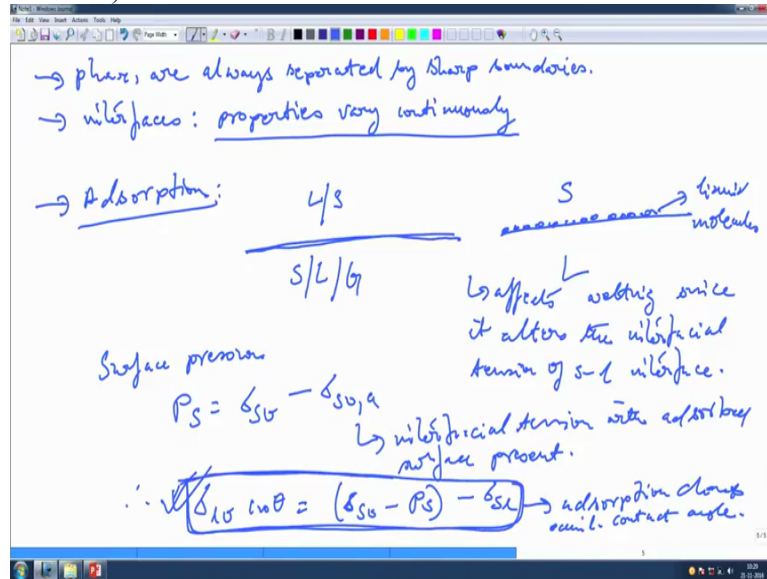 Note1 - Windows Journal
File Edit View Insert Actions Tools Help
Page Width
B
→ phases are always separated by sharp boundaries.
→ interfaces: properties vary continuously
→ Adsorption:
L/S
S/L/G
S
→ liquid molecules
L
↳ affects wetting since
it alters the interfacial
tension of s-l interface.
Surface pressure
Ps = σsv - σsv,a
↳ interfacial tension with adsorbed
surface present.
∴ σlv cosθ = (σsv - Ps) - σsl → adsorption changes
equil. contact angle.
5/5
5
10:29
21-11-2016